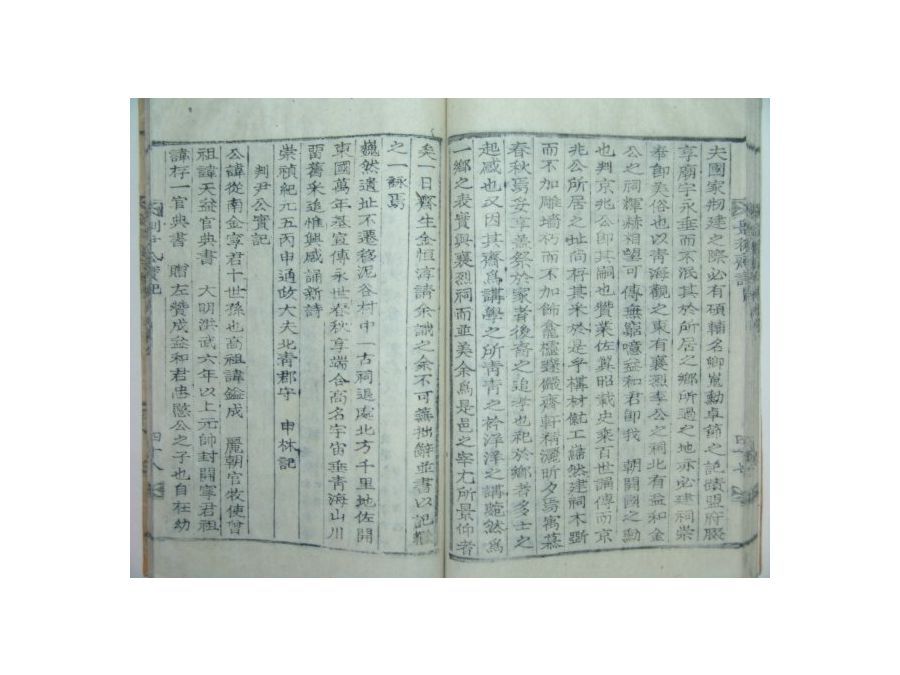 夫國家刱建之際必有碩輔名卿嵬勳卓節之訑蹟盟府腏
享廟宇永垂而不泯其於所居之鄉所過之地亦必建祠崇
奉卽美俗也以青海觀之東有襄烈李公之祠北有益和金
公之祠輝赫相望可傳無窮噫益和君卽我 朝開國之勳
也判京兆公卽其嗣也贊業佐冀昭載史乘百世誦傳而京
兆公所居之址尚存其米於是乎構材僦工蕆然建祠木斲
而不加雕墻朽而不加飾龕櫺邃儼齋軒稱灑昕夕焉寓慕
春秋焉妥享蓋祭於家者後裔之追孝也祀於鄉者多士之
起感也又因其齊爲講學之所靑靑之衿洋洋之講蔚然爲
一鄉之表實與襄烈祠而並美余爲是邑之宰尤所景仰者
矣一日齊生金恒淳請余識之余不可蕪拙辭並書以記
之一詠焉
巍然遺址不遷移泥谷村中一古祠退處北方千里地佐開
東國萬年基宣傳永世春秋享端合高名宇宙垂靑海山川
留舊采追惟興感誦新詩
崇禎紀元五丙申通政大夫北靑郡守 申林記
判尹公實記
公諱從南金寧君十世孫也高祖諱鎰成 麗朝官牧使曾
祖諱天益官典書 大明洪武六年以上元帥封開寧君祖
諱存一官典書 贈左贊成益和君忠愍公之子也自在幼
判尹公實記
四十八